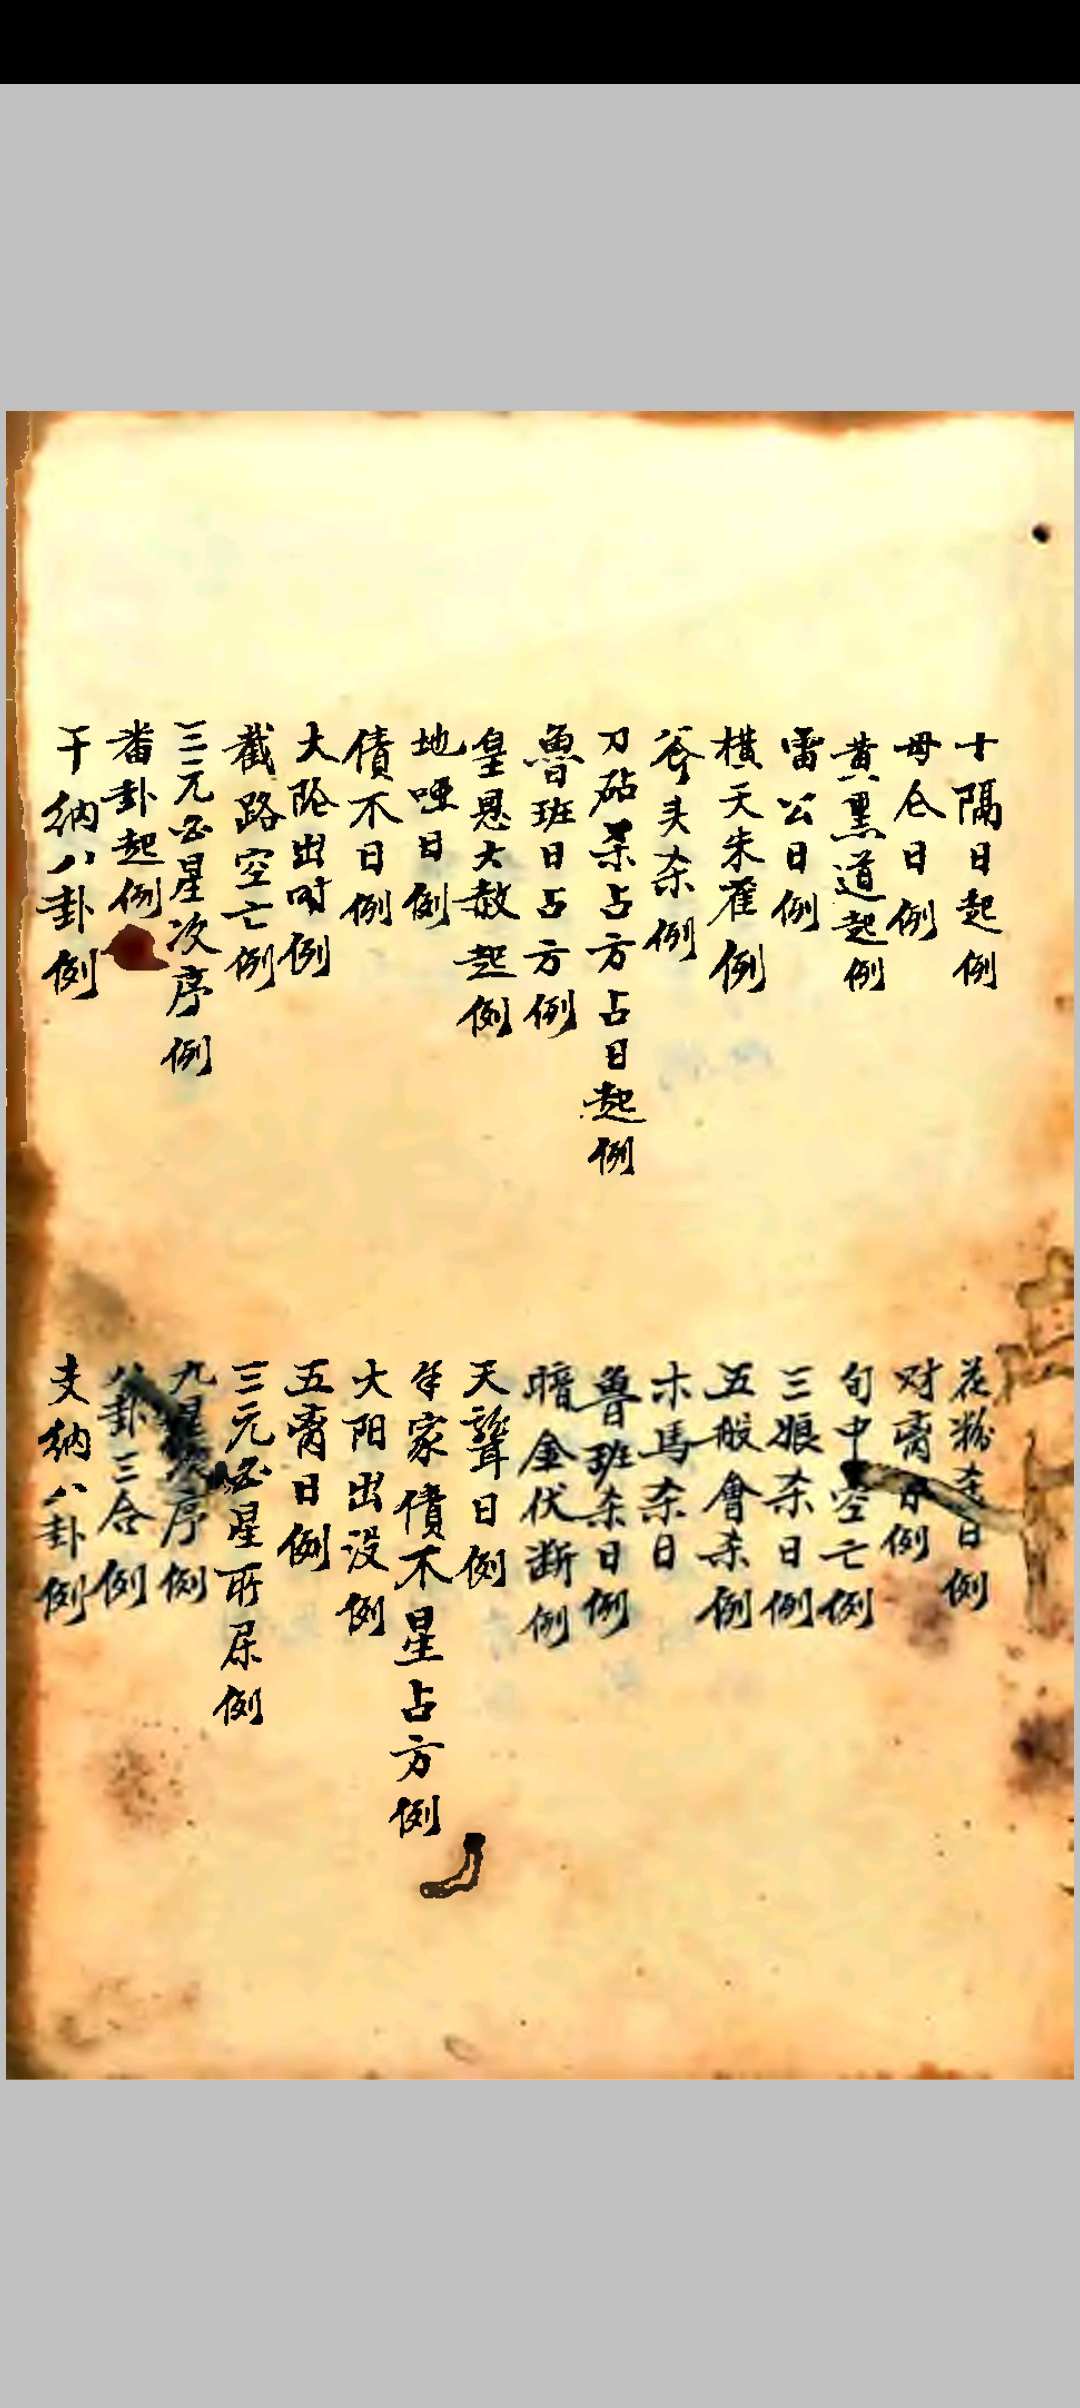 十隔日起例
母仓日例
黄黑道起例
雷公日例
横天朱雀例
斧头杀例
刀砧杀占方占日起例
魯班日占方例
皇恩大赦起例
地哑日例
債不日例
大陰出时例
截路空亡例
三元必星次序例
番卦起例
干纳八卦例
花粉杀日例
对日例
旬中空亡例
三娘杀日例
五般會杀例
木馬杀日
魯班杀日例
暗金伏断例
天聋日例
年家債不星占方例
大阳出没例
五日例
三元必星所属例
九星次序例
八卦三合例
支纳八卦例